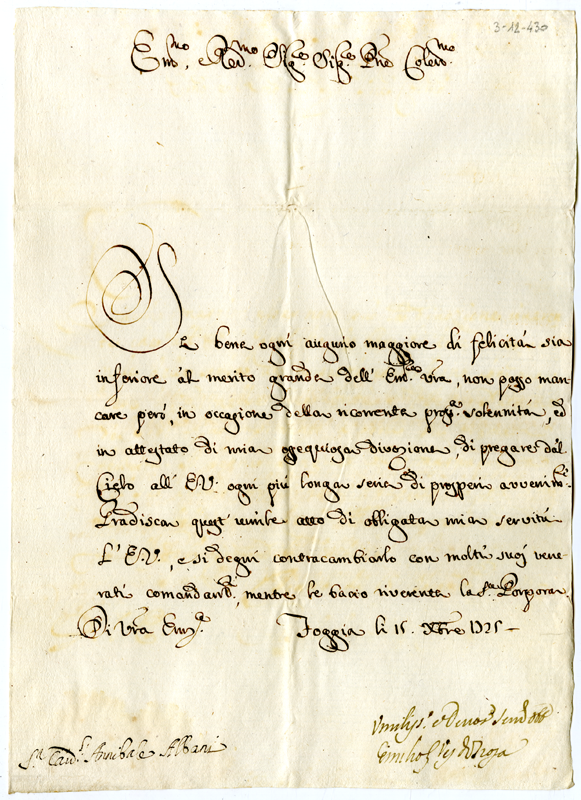 3-12-430
Em̃o, e Red.mo Sig.re Sig.re Pne Colmo
Se bene ogni augurio maggiore di felicità sia
inferiore al merito grande dell' Em.za Vr̃a, non posso man
care però, in occasione della ricorrente pross.a solennità, ed
in attestato di mia ossequiosa divozione, di pregare dal
Cielo all' E.V. ogni più longa serie di prosperi avvenim.ti
Gradisca quest' umile atto di obligata mia servitù
L' E.V., e si degni contracambiarlo con molti suoi vene-
rati comandam.ti, mentre le bacio riverente la S.ra Porpora
Di Vr̃a Em.za Foggia li 15. Xbre 1725
Umiliss.o e Devot.o Serv.e Obb.o
Emilio di Troja
S.r Card.l Annibale Albani